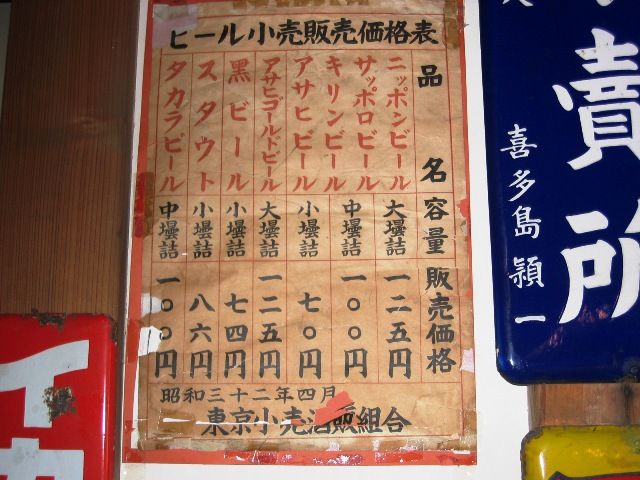 ビール小売販売価格表
品名 容量 販売価格
ニッポンビール
サッポロビール
キリンビール
アサヒビール
大壜詰 一二五円
中壜詰 一〇〇円
小壜詰 七〇円
アサヒゴールドビール 大壜詰 一二五円
黒ビール 小壜詰 七四円
スタウト 小壜詰 八六円
タカラビール 中壜詰 一〇〇円
昭和三十二年四月
東京小売酒販組合
賣所
喜多島頴一
イ